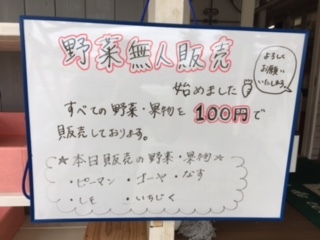 野菜無人販売
よろしく
お願い
いたします。
始めました
すべての野菜・果物を100円で
販売しております。
☆本日販売の野菜・果物☆
・ピーマン ・ゴーヤ ・なす
・しそ ・いちじく